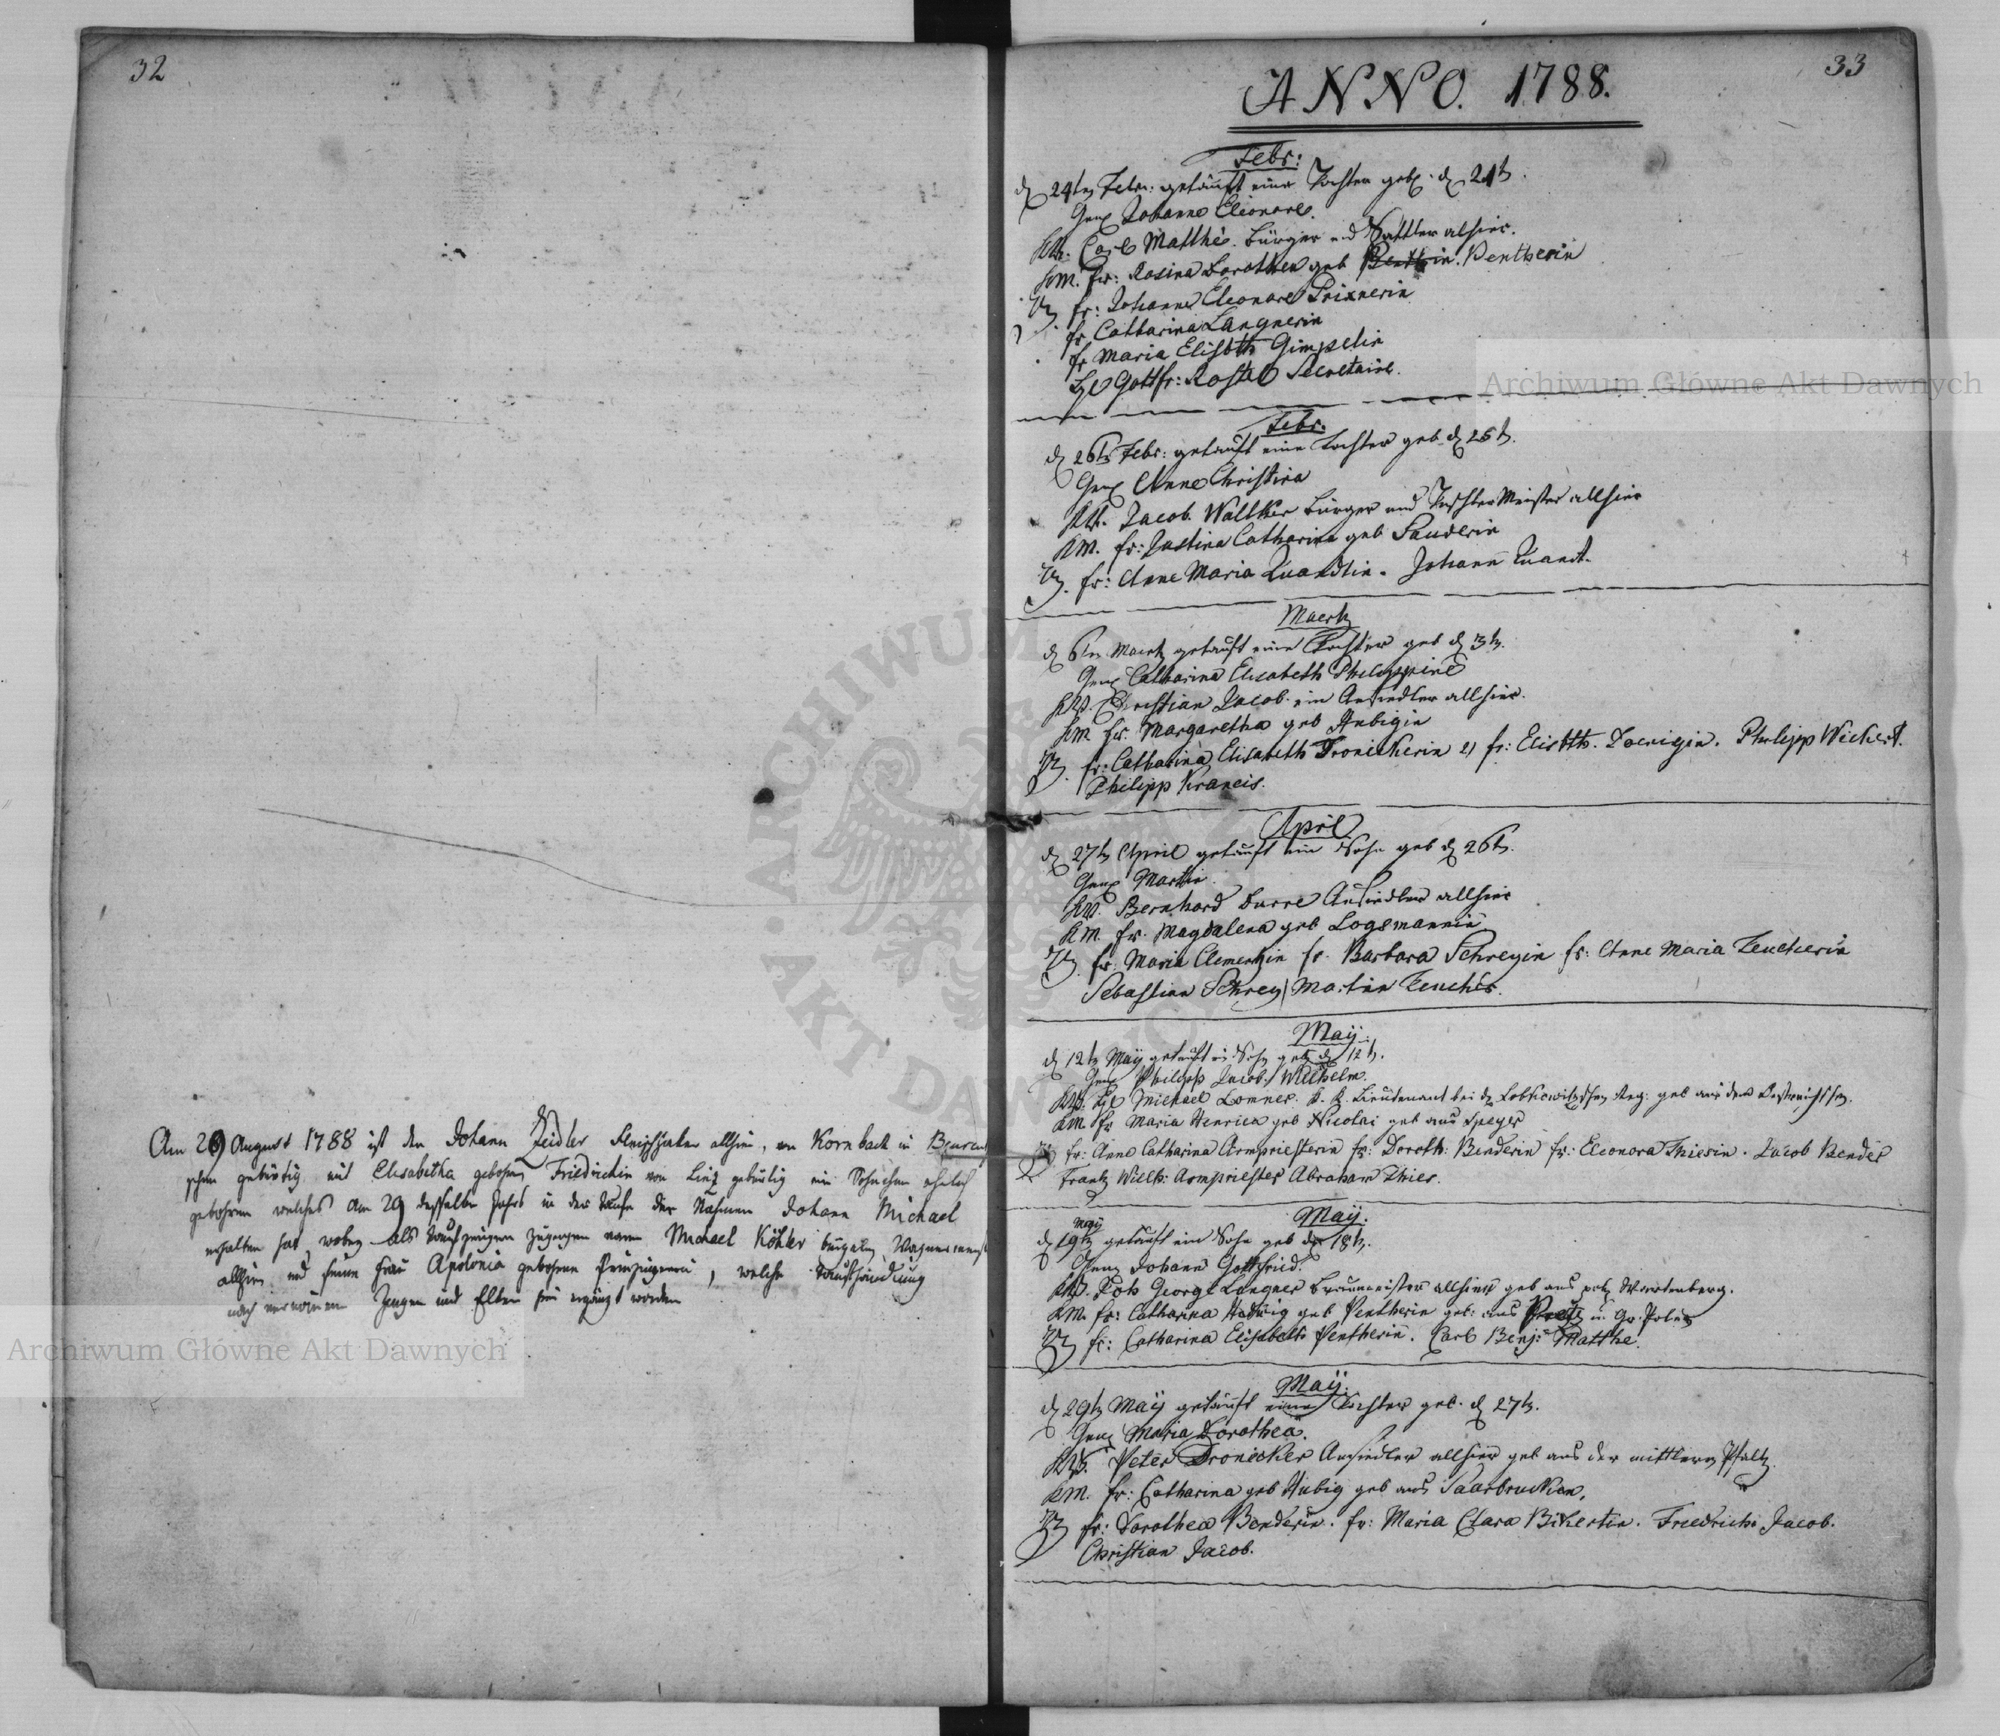 32
Am 29 August 1788 ist den Johann Zeidler Fleischhaker allhier, von Kornbach in
gebürtig mit Elisabetha gebohrne Friedrichin von Linz gebürtig ein Söhnchen ehelich
gebohren welches am 29 desselben Jahrs in der Taufe den Nahmen Johann Michael
erhalten hat, wobey als Taufzeugen zugegen waren Michael Köhler
allhier und seine Frau Apolonia gebohrne, welche
nach Zeugen und Eltern ergänzt worden
33
ANNO. 1788.
Febr:
d 24ten Febr: getauft eine Tochter geb. d. 21t.
Gen. Johanne Eleonore.
KV. Carl Matthé. Bürger und Sattler alhier.
KM. fr: Rosina Dorothea geb Pentherin
TZ fr: Johanne Eleonore Prixnerin
fr Catharina Langnerin
fr Maria Elisbth Gimpelin
H Gottfr: Rostel Secretaire.
Febr.
d 26ts Febr: getauft eine Tochter geb d 25t.
Gen Anne Christina
KV. Jacob. Walther Bürger und Tischler Meister allhier
KM. fr: Justina Catharina geb Sauderin
TZ. fr: Anne Maria Quandtin. Johann Quandt.
Maertz
d 6tn Maertz getauft eine Tochter geb d 3t.
Gen Catharina Elisabeth Philippine
KV. Christian Jacob. ein Ansiedler allhier.
KM. fr. Margaretha geb Hubigin
TZ. fr: Catharina Elisabeth Dronickerin 2) fr: Elisbth. Koenigin. Philipp Weckert.
Philipp Krancis.
April
d 27t April getauft ein Sohn geb d 26t.
Gen Martin
KV. Bernhard Durre Ansiedler allhier
KM. fr. Magdalena geb Logemannin
TZ. fr. Maria Clementzin fr. Barbara Schreyin fr: Anne Maria Zeucherin
Sebastian Schrey Martin Zeucher.
Maÿ.
d 12t Maÿ getauft ein Sohn geb d 12t.
Gen Philipp Jacob. Wilhelm.
KV. H Michael Lomner. K. K. Lieutenant bei d Lobkowitzschen Reg. geb aus dem Oestreichschen.
KM. fr Maria Henrica geb Nicolai geb aus Speyer
TZ fr: Anne Catharina Armpriesterin fr: Doroth: Benderin fr: Eleonora Thierin. Jacob Bender
Frantz Wilh: Armpriester Abraham Thier.
Maÿ.
d 19t Maÿ getauft ein Sohn geb d 18t.
Gen Johann Gottfried.
KV. Joh George Langner Braumeister allhier geb aus Wurtenberg.
KM. fr: Catharina Hadwig geb Pentherin geb: aus in Gr. Polen
TZ fr: Catharina Elisabeth Pentherin. Carl Benj: Matthe.
Maÿ.
d 29t Maÿ getauft eine Tochter geb. d 27t.
Gen Maria Dorothea.
KV. Peter Dronicker Ansiedler allhier geb aus der mittlern Pfaltz.
KM. fr: Catharina geb Hubig geb aus Saarbrucken.
TZ fr: Dorothea Benderin. fr: Maria Clara Bikertin. Friedrich Jacob.
Christian Jacob.
Archiwum Główne Akt Dawnych
Archiwum Główne Akt Dawnych
ARCHIWUM
AKT DAWNYCH